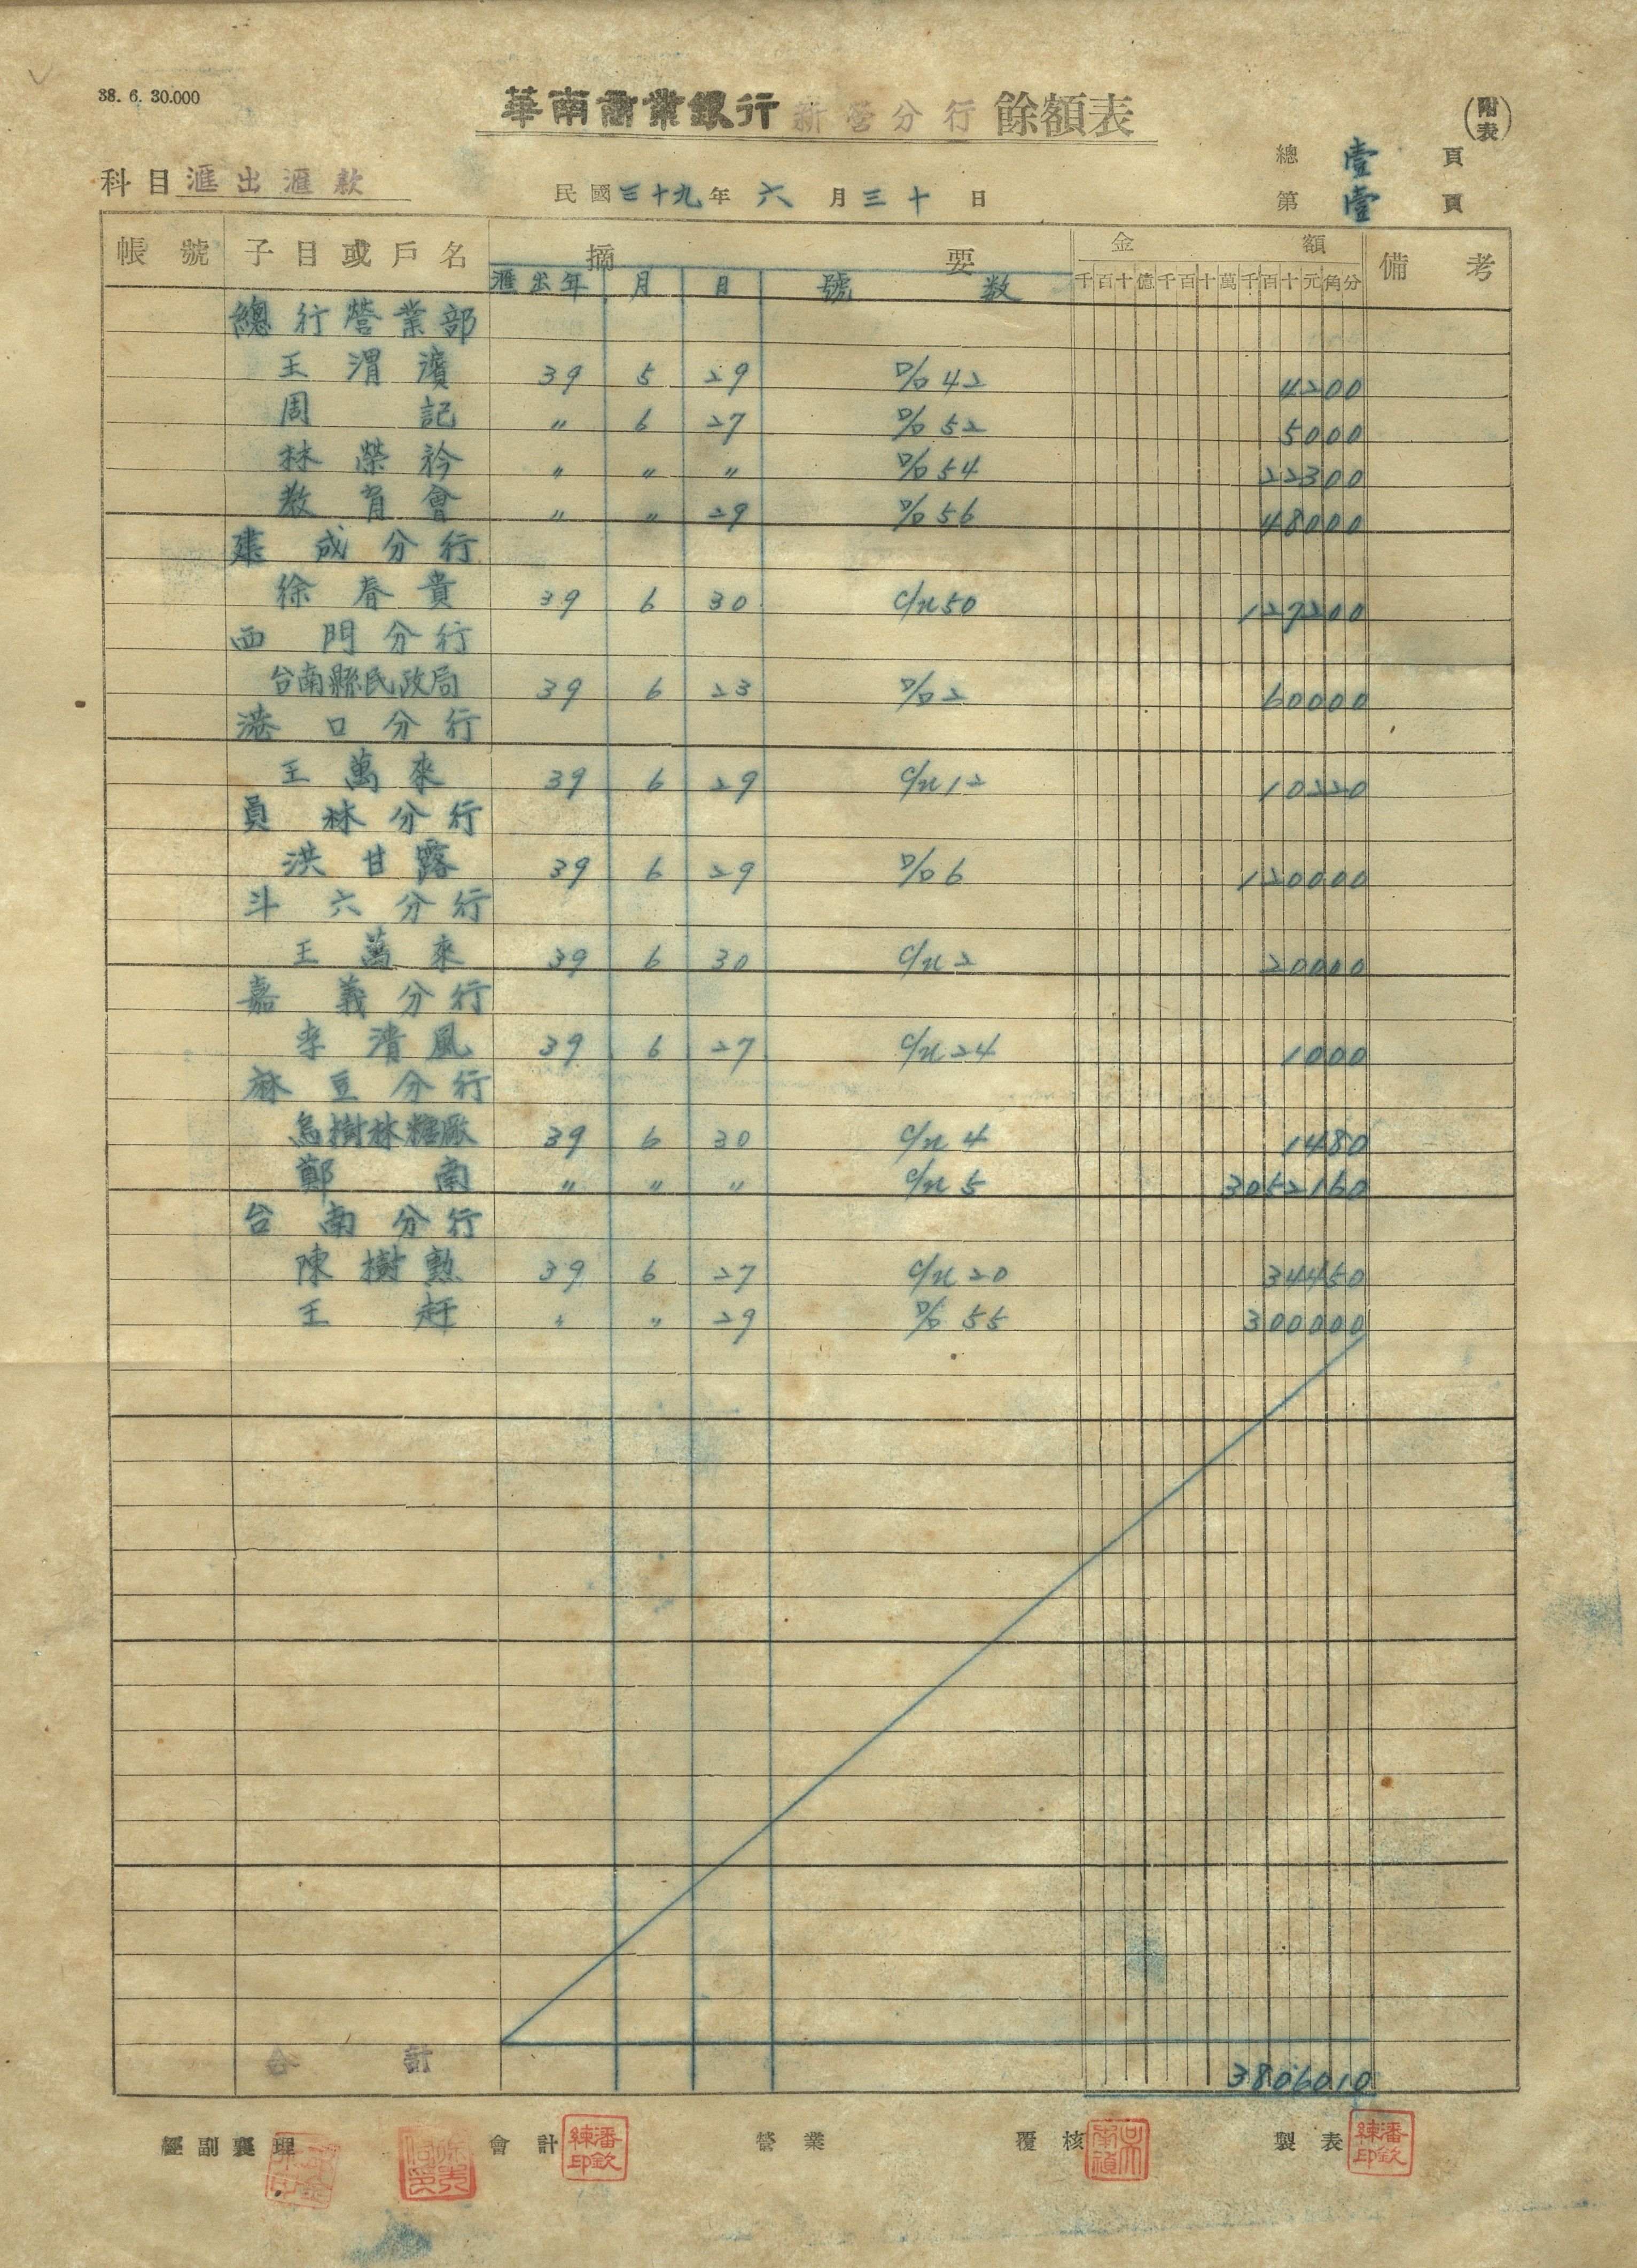 38. 6. 30.000
華南商業銀行 新營分行 餘額表
(附表)
總 壹 頁
科目 滙出滙款 民國三十九年 六 月三十 日 第 壹 頁
帳號 子目或戶名 摘要 金額 備考
滙出年 月 日 號數 千百十億千百十萬千百十元角分
總行營業部
王渭濱 39 5 29 D/D 42 4200
周記 〃 6 27 D/D 52 5000
林榮衿 〃 〃 〃 D/D 54 22300
教育會 〃 〃 29 D/D 56 48000
建成分行
徐春貴 39 6 30 C/N 50 127200
西門分行
台南縣民政局 39 6 23 D/D 2 60000
港口分行
王萬來 39 6 29 C/N 12 10220
員林分行
洪甘露 39 6 29 D/D 6 120000
斗六分行
王萬來 39 6 30 C/N 2 20000
嘉義分行
李清風 39 6 27 C/N 24 1000
麻豆分行
烏樹林糖廠 39 6 30 C/N 4 1480
鄭南 〃 〃 〃 C/N 5 3052160
台南分行
陳樹勲 39 6 27 C/N 20 34450
王赶 〃 〃 29 D/D 55 300000
合計 3806010
經副襄理 會計 潘欽練印 營業 覆核 製表 潘欽練印